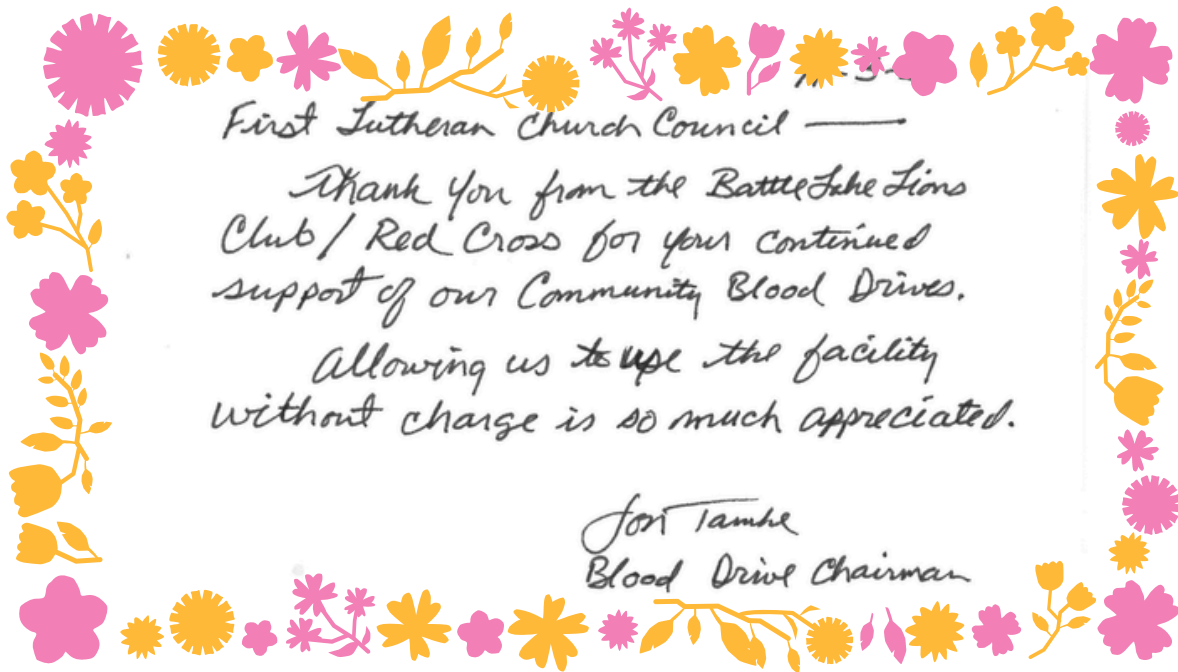 First Lutheran Church Council —
Thank you from the Battle Lake Lions
Club / Red Cross for your continued
support of our Community Blood Drives.
Allowing us to use the facility
without charge is so much appreciated.
Blood Drive Chairman